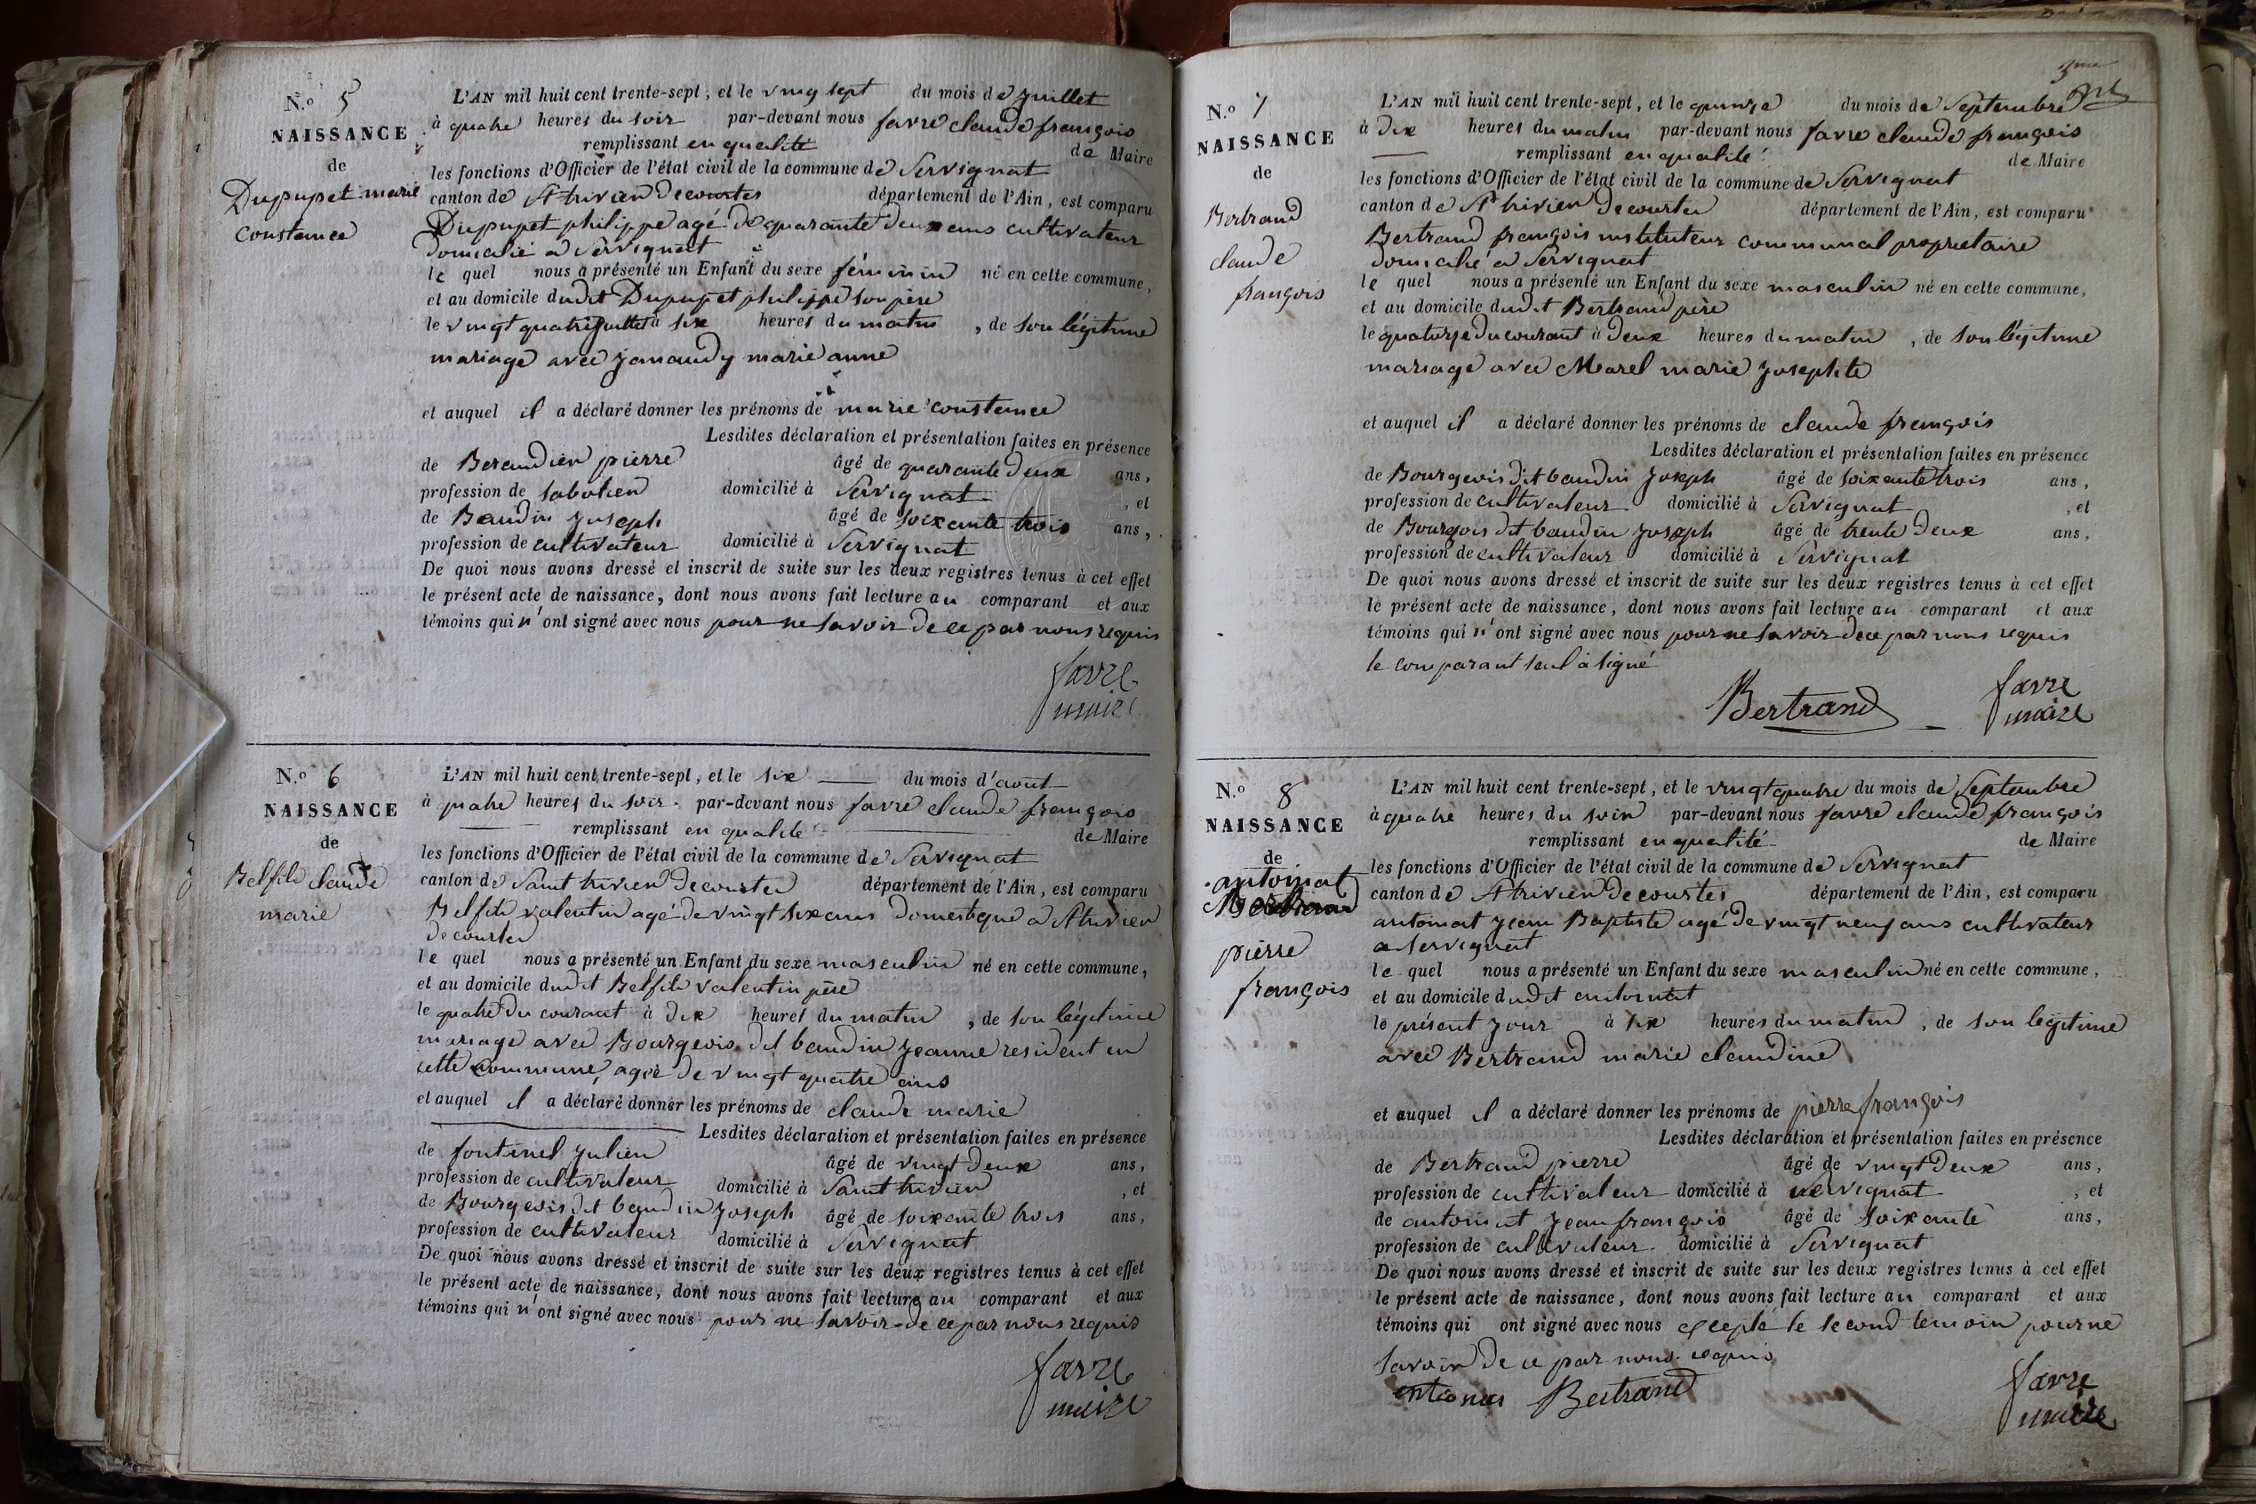 N.o 5
NAISSANCE
de
Dupupet marie
constance
L'AN mil huit cent trente-sept, et le vingt sept du mois de juillet
à quatre heures du soir par-devant nous favre claude françois
remplissant en qualité de Maire
les fonctions d'Officier de l'état civil de la commune de Servignat
canton de St trivier de courtes département de l'Ain, est comparu
Dupupet philippe agé de quarante deux ans cultivateur
domicilié a Servignat
le quel nous a présenté un Enfant du sexe féminin né en cette commune,
et au domicile dudit Dupupet philippe son père
le vingt quatre juillet à six heures du matin, de son légitime
mariage avec janaudy marie anne
et auquel il a déclaré donner les prénoms de marie constance
Lesdites déclaration et présentation faites en présence
de Beraudier pierre âgé de quarante deux ans,
profession de sabotier domicilié à Servignat, et
de Baudin joseph âgé de soixante trois ans,
profession de cultivateur domicilié à Servignat
De quoi nous avons dressé et inscrit de suite sur les deux registres tenus à cet effet
le présent acte de naissance, dont nous avons fait lecture au comparant et aux
témoins qui n'ont signé avec nous pour ne savoir de ce par nous requis
favre
maire
N.o 6
NAISSANCE
de
Belfils claude
marie
L'AN mil huit cent trente-sept, et le six du mois d'aout
à quatre heures du soir par-devant nous favre claude françois
remplissant en qualité de Maire
les fonctions d'Officier de l'état civil de la commune de Servignat
canton de Saint trivier de courtes département de l'Ain, est comparu
Belfils valentin agé de vingt six ans domestique a St trivier
de courtes
le quel nous a présenté un Enfant du sexe masculin né en cette commune,
et au domicile dudit Belfils valentin père
le quatre du courant à dix heures du matin, de son légitime
mariage avec Bourgeois dit baudin jeanne resident en
cette commune, agée de vingt quatre ans
et auquel il a déclaré donner les prénoms de claude marie
Lesdites déclaration et présentation faites en présence
de fontenel julien âgé de vingt deux ans,
profession de cultivateur domicilié à Saint trivier, et
de Bourgeois dit baudin joseph âgé de soixante trois ans,
profession de cultivateur domicilié à Servignat
De quoi nous avons dressé et inscrit de suite sur les deux registres tenus à cet effet
le présent acte de naissance, dont nous avons fait lecture au comparant et aux
témoins qui n'ont signé avec nous pour ne savoir de ce par nous requis
favre
maire
3me
N.o 7
NAISSANCE
de
Bertrand
claude
françois
L'AN mil huit cent trente-sept, et le quinze du mois de Septembre
à dix heures du matin par-devant nous favre claude françois
remplissant en qualité de Maire
les fonctions d'Officier de l'état civil de la commune de Servignat
canton de St trivier de courtes département de l'Ain, est comparu
Bertrand françois instituteur communal proprietaire
domicilié a Servignat
le quel nous a présenté un Enfant du sexe masculin né en cette commune,
et au domicile dudit Bertrand père
le quatorze du courant à deux heures du matin, de son légitime
mariage avec Morel marie josephte
et auquel il a déclaré donner les prénoms de claude françois
Lesdites déclaration et présentation faites en présence
de Bourgeois dit baudin joseph âgé de soixante trois ans,
profession de cultivateur domicilié à Servignat, et
de Bourgois dit baudin joseph âgé de trente deux ans,
profession de cultivateur domicilié à Servignat
De quoi nous avons dressé et inscrit de suite sur les deux registres tenus à cet effet
le présent acte de naissance, dont nous avons fait lecture au comparant et aux
témoins qui n'ont signé avec nous pour ne savoir de ce par nous requis
le comparant seul a signé
Bertrand favre
maire
N.o 8
NAISSANCE
de
antoinat
Bertrand
pierre
françois
L'AN mil huit cent trente-sept, et le vingt quatre du mois de Septembre
à quatre heures du soir par-devant nous favre claude françois
remplissant en qualité de Maire
les fonctions d'Officier de l'état civil de la commune de Servignat
canton de St trivier de courtes département de l'Ain, est comparu
antoinat jean Baptiste agé de vingt neuf ans cultivateur
a Servignat
le quel nous a présenté un Enfant du sexe masculin né en cette commune,
et au domicile dudit antoinat
le présent jour à six heures du matin, de son légitime
avec Bertrand marie claudine
et auquel il a déclaré donner les prénoms de pierre françois
Lesdites déclaration et présentation faites en présence
de Bertrand pierre âgé de vingt deux ans,
profession de cultivateur domicilié à servignat, et
de antoinat jean françois âgé de soixante ans,
profession de cultivateur domicilié à Servignat
De quoi nous avons dressé et inscrit de suite sur les deux registres tenus à cet effet
le présent acte de naissance, dont nous avons fait lecture au comparant et aux
témoins qui ont signé avec nous excepté le second temoin pour ne
savoir de ce par nous requis
Bertrand favre
maire